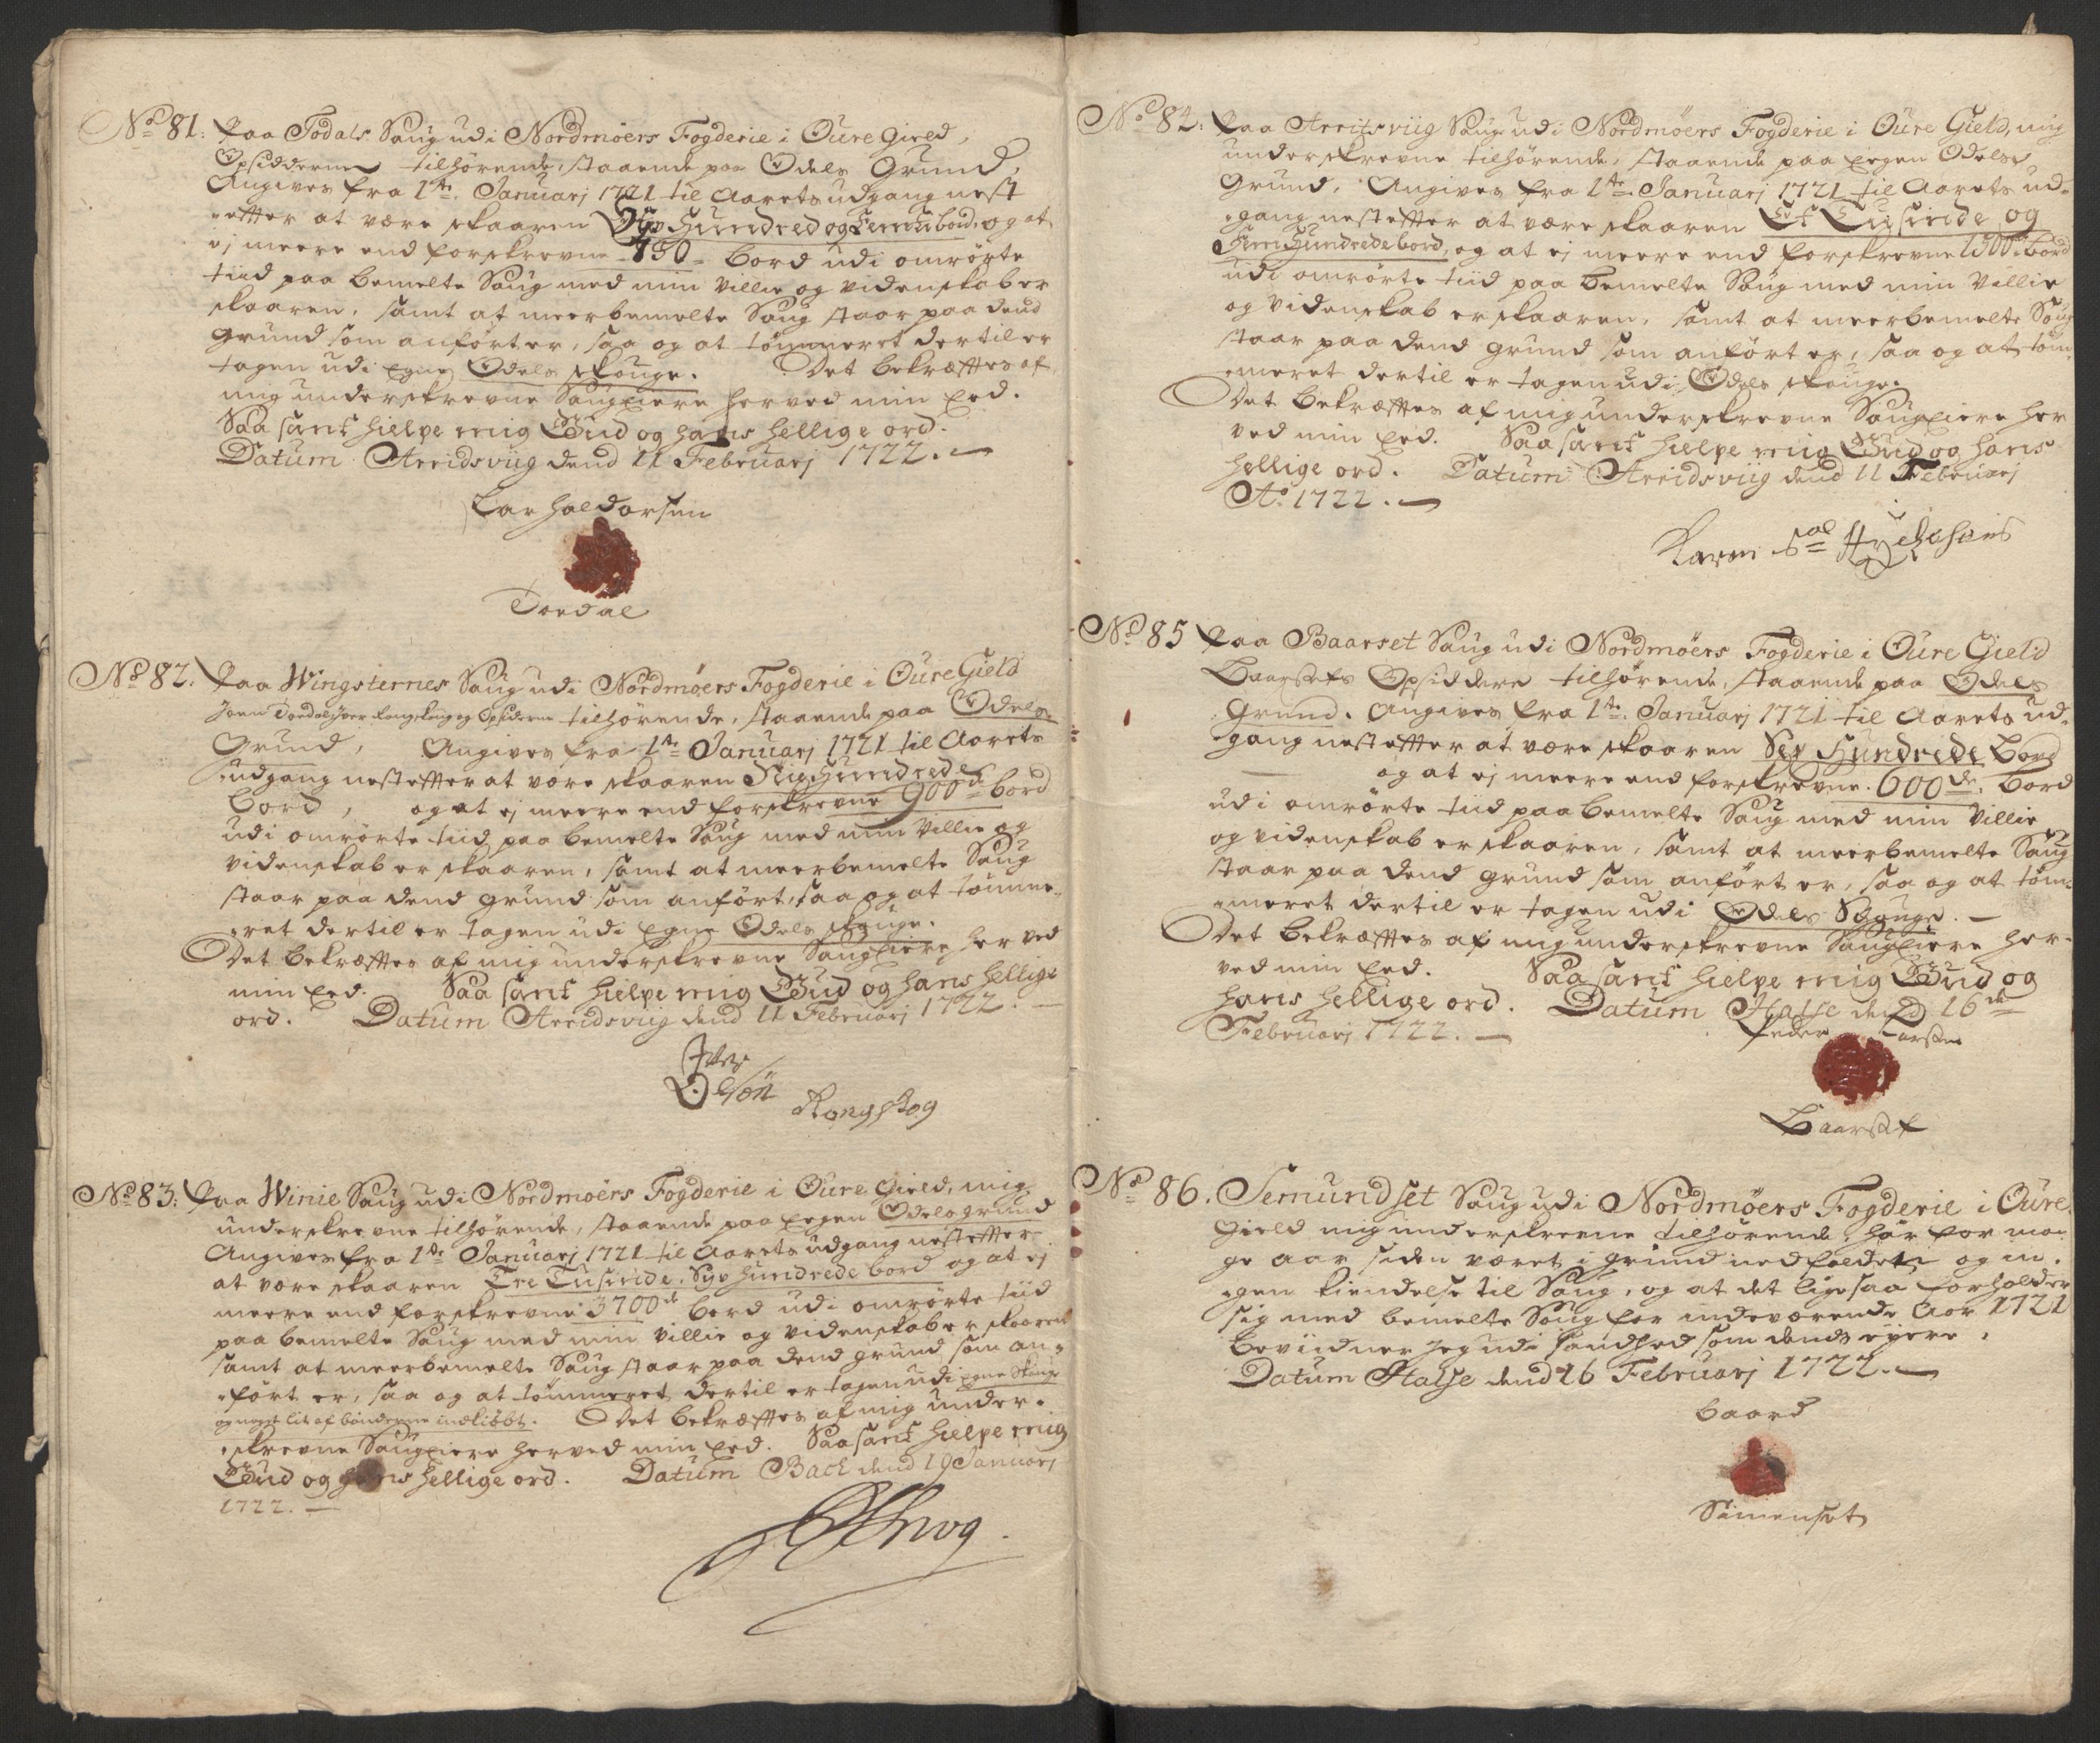 No 81. Paa Todals Saug udi Nordmöers Fogderie i Öure Gield,
Opsidderne tilhörende, staaende paa Odels Grund,
Angives fra 1te Januarj 1721 til Aarets udgang nest
efter at være skaaren Syv Hundred og Femti bord, og at
ej meere end forskrevne 750 bord udi omrörte
tiid paa bemelte Saug med min Villie og videnskab er
skaaren, samt at meerbemelte Saug staar paa dend
grund som anfört er, saa og at tömmeret dertil er
tagen udi egne Odels skouge. Det bekræfftes af
mig underskrevne Saugeiere herved min Eed.
Saa sant hielpe mig Gud og hans hellige ord.
Datum Arridsviig dend 11 Februarj 1722.
Lar Haldorsen
Tordal
No 82. Paa Wingsternes Saug udi Nordmöers Fogderie i Öure Gield
Joen Tordal Iver Rangskog og Opsidderne tilhörende, staaende paa Odels
Grund, Angives fra 1te Januarj 1721 til Aarets
udgang nest effter at være skaaren Nie Hundrede
bord, og at ej meere end forskrevne 900de bord
udi omrörte tiid paa bemelte Saug med min Villie og
videnskab er skaaren, samt at meerbemelte Saug
staar paa dend grund som anfört, saa og at tömme-
eret dertil er tagen udi egne Odels skouge.
Det bekræfftes af mig underskrevne Saugeiere her ved
min Eed. Saa sant hielpe mig Gud og hans hellige
ord. Datum Arridsviig dend 11 Februarj 1722.
Iver
Olsön Rangskog
No 83. Paa Winie Saug udi Nordmöers Fogderie i Öure Gield, mig
underskrevne tilhörende, staaende paa Eegen Odels grund
Angives fra 1te Januarj 1721 til Aarets udgang nest effter
at være skaaren Tre Tusinde, Syv hundrede bord og at ej
meere end forskrevne 3700de bord udi omrörte tiid
paa bemelte Saug med min Villie og videnskab er skaaren
samt at meerbemelte Saug staar paa dend grund som an-
fört er, saa og at tömmeret dertil er tagen udi egne Skouge
og noget lit af bönderne indkiöbt. Det bekræfftes af mig under-
skrevne Saugeiere herved min Eed. Saa sant hielpe mig
Gud og hans hellige ord. Datum Back dend 19 Januarj
1722.
No 84. Paa Arritsviig Saug udi Nordmöers Fogderie i Öure Gield, mig
underskrevne tilhörende, staaende paa Eegen Odels
Grund, Angives fra 1te Januarj 1721 til Aarets ud-
gang nest effter at være skaaren Et Tusinde og
Fem Hundrede bord, og at ej meere end forskrevne 1500de bord
udi omrörte tiid paa bemelte Saug med min Villie
og Videnskab er skaaren, samt at meerbemelte Saug
staar paa dend grund som anfört er, saa og at töm-
meret dertil er tagen udi Odels skouge.
Det bekræfftes af mig underskrevne Saugeiere her
ved min Eed. Saa sant hielpe mig Gud og hans
hellige ord. Datum Arridsviig dend 11 Februarj
Ao 1722.
Karen Sal
No 85 Paa Baarset Saug udi Nordmöers Fogderie i Öure Gield
Baarsets Opsiddere tilhörende, staaende paa Odels
Grund. Angives fra 1te Januarj 1721 til Aarets ud-
gang nest effter at være skaaren Sex Hundrede Bord
og at ej meere end forskrevne 600de bord
udi omrörte tiid paa bemelte Saug med min Villie
og videnskab er skaaren, samt at meerbemelte Saug
staar paa dend grund som anfört er, saa og at töm-
meret dertil er tagen udi Odels Skouge.
Det bekræfftes af mig underskrevne Saugeiere her-
ved min Eed. Saa sant hielpe mig Gud og
hans hellige ord. Datum Halse dend 16de
Februarj 1722.
Peder Larsen
Baarset
No 86. Semundset Saug udi Nordmöers Fogderie i Öure
Gield mig underskrevne tilhörende, har for man-
ge aar siden været i grund nedfaldet og in-
gen kiendelse til Saug, og at det ligesaa forholder
sig med bemelte Saug for indeværende Aar 1721
beviidner jeg udi Sandhed som dends eyere,
Datum Halse dend 16 Februarj 1722.
Baard
Simenset